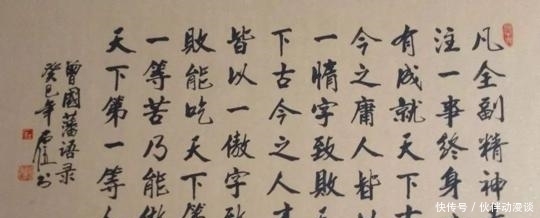 凡全副精神
注一事终身
有成就天下古
今之庸人皆以
一惰字致败
下古今之人才
皆以一傲字致
败能吃天下第
一等苦乃能做
天下第一等人
曾國藩语录
癸巳年 书
快传号/伙伴动漫谈